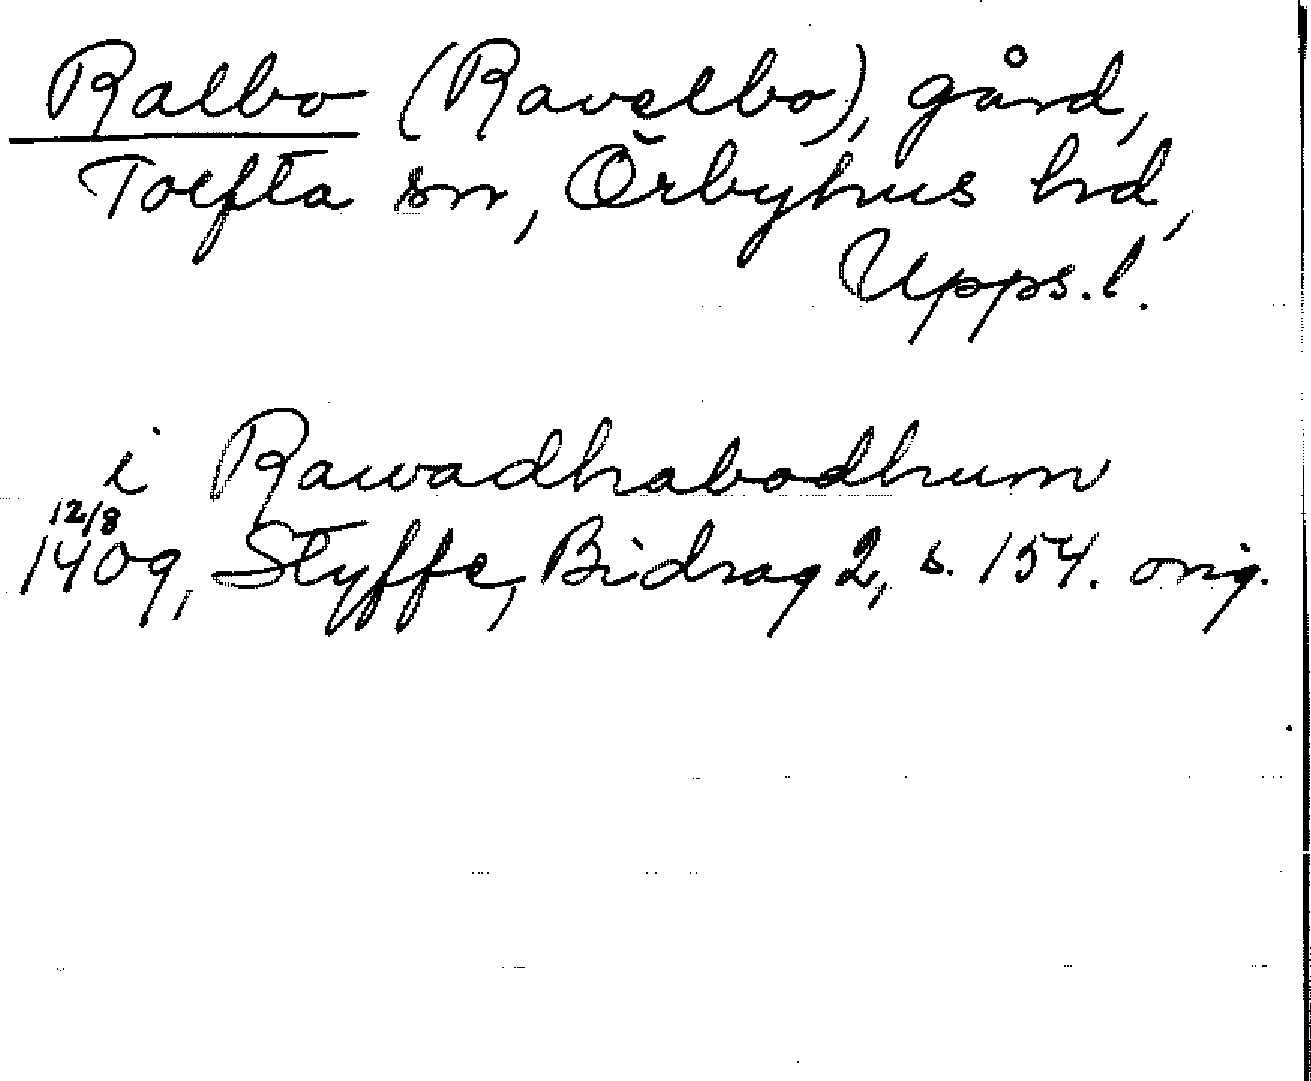 Ralbo (Ravelbo), gård,
Tolfta sn, Örbyhus hd,
Upps. l.
i Rawadhabodhum
12/8
1409, Styffe, Bidrag 2, s. 154. orig.